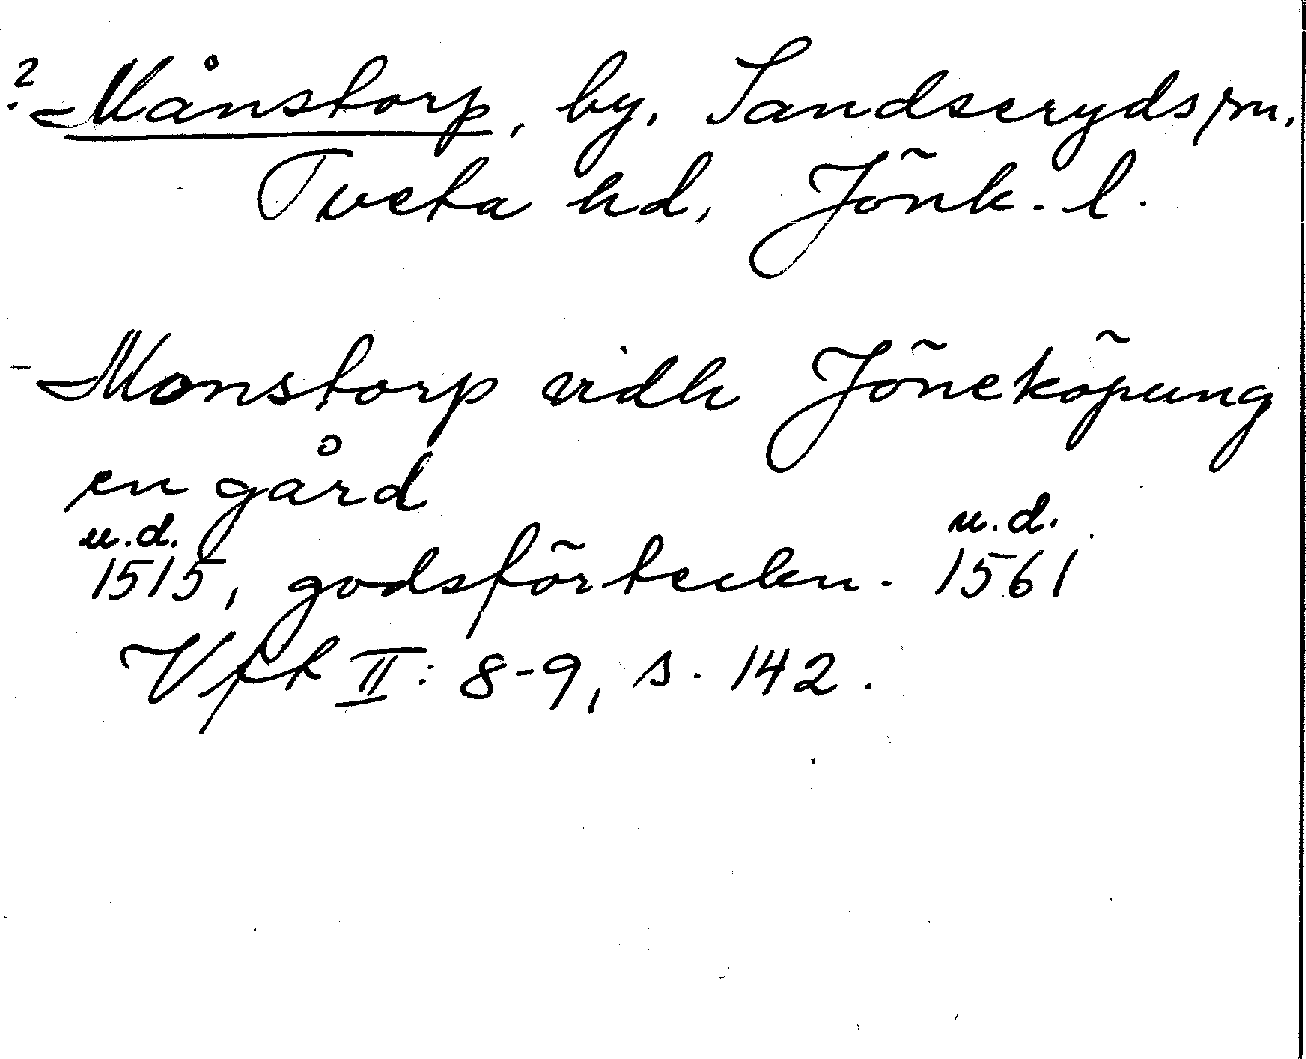 ? Månstorp, by, Sandseryds sn.
Tveta hd, Jönk. l.
- Monstorp vidh Jöneköpung
en gård
u.d. u.d.
1515, godsförteckn. 1561
Vfk II: 8-9, s. 142.